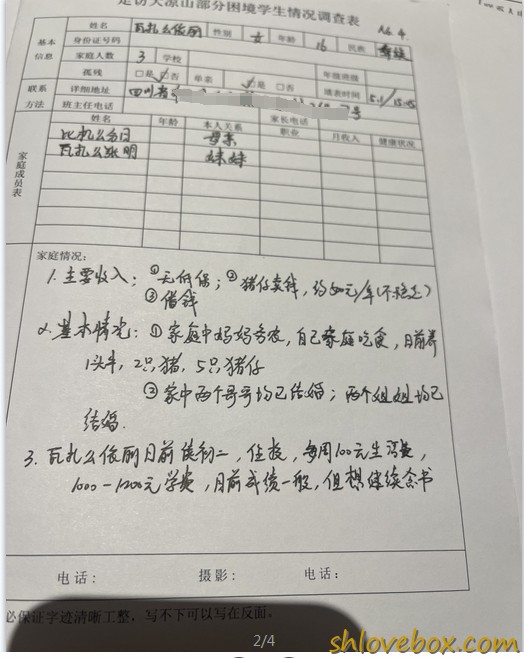 走访大凉山部分困境学生情况调查表
No.4.
姓名 瓦扎么依丽 性别 女 年龄 16 民族 彝族
基本信息
身份证号码
家庭人数 3 学校 年级班级
孤残 □是 ☑否 单亲 ☑是 □否 填表时间
联系方法
详细地址 四川省 号
班主任电话 家长电话
家庭成员表
姓名 年龄 本人关系 职业 月收入 健康状况
母亲
妹妹
家庭情况:
1. 主要收入:①无低保;②猪仔卖钱,约 元/年(不稳定)
③借钱
2. 基本情况:①家庭中妈妈务农,自己家庭吃食,目前养
1头牛,2只猪,5只猪仔
②家中两个哥哥均已结婚;两个姐姐均已
结婚.
3. 瓦扎么依丽目前读初二,住校,每周100元生活费,
1000-1200元学费,目前成绩一般,但想继续念书
电话: 摄影: 电话:
必保证字迹清晰工整,写不下可以写在反面。
2/4
shlovebox.com